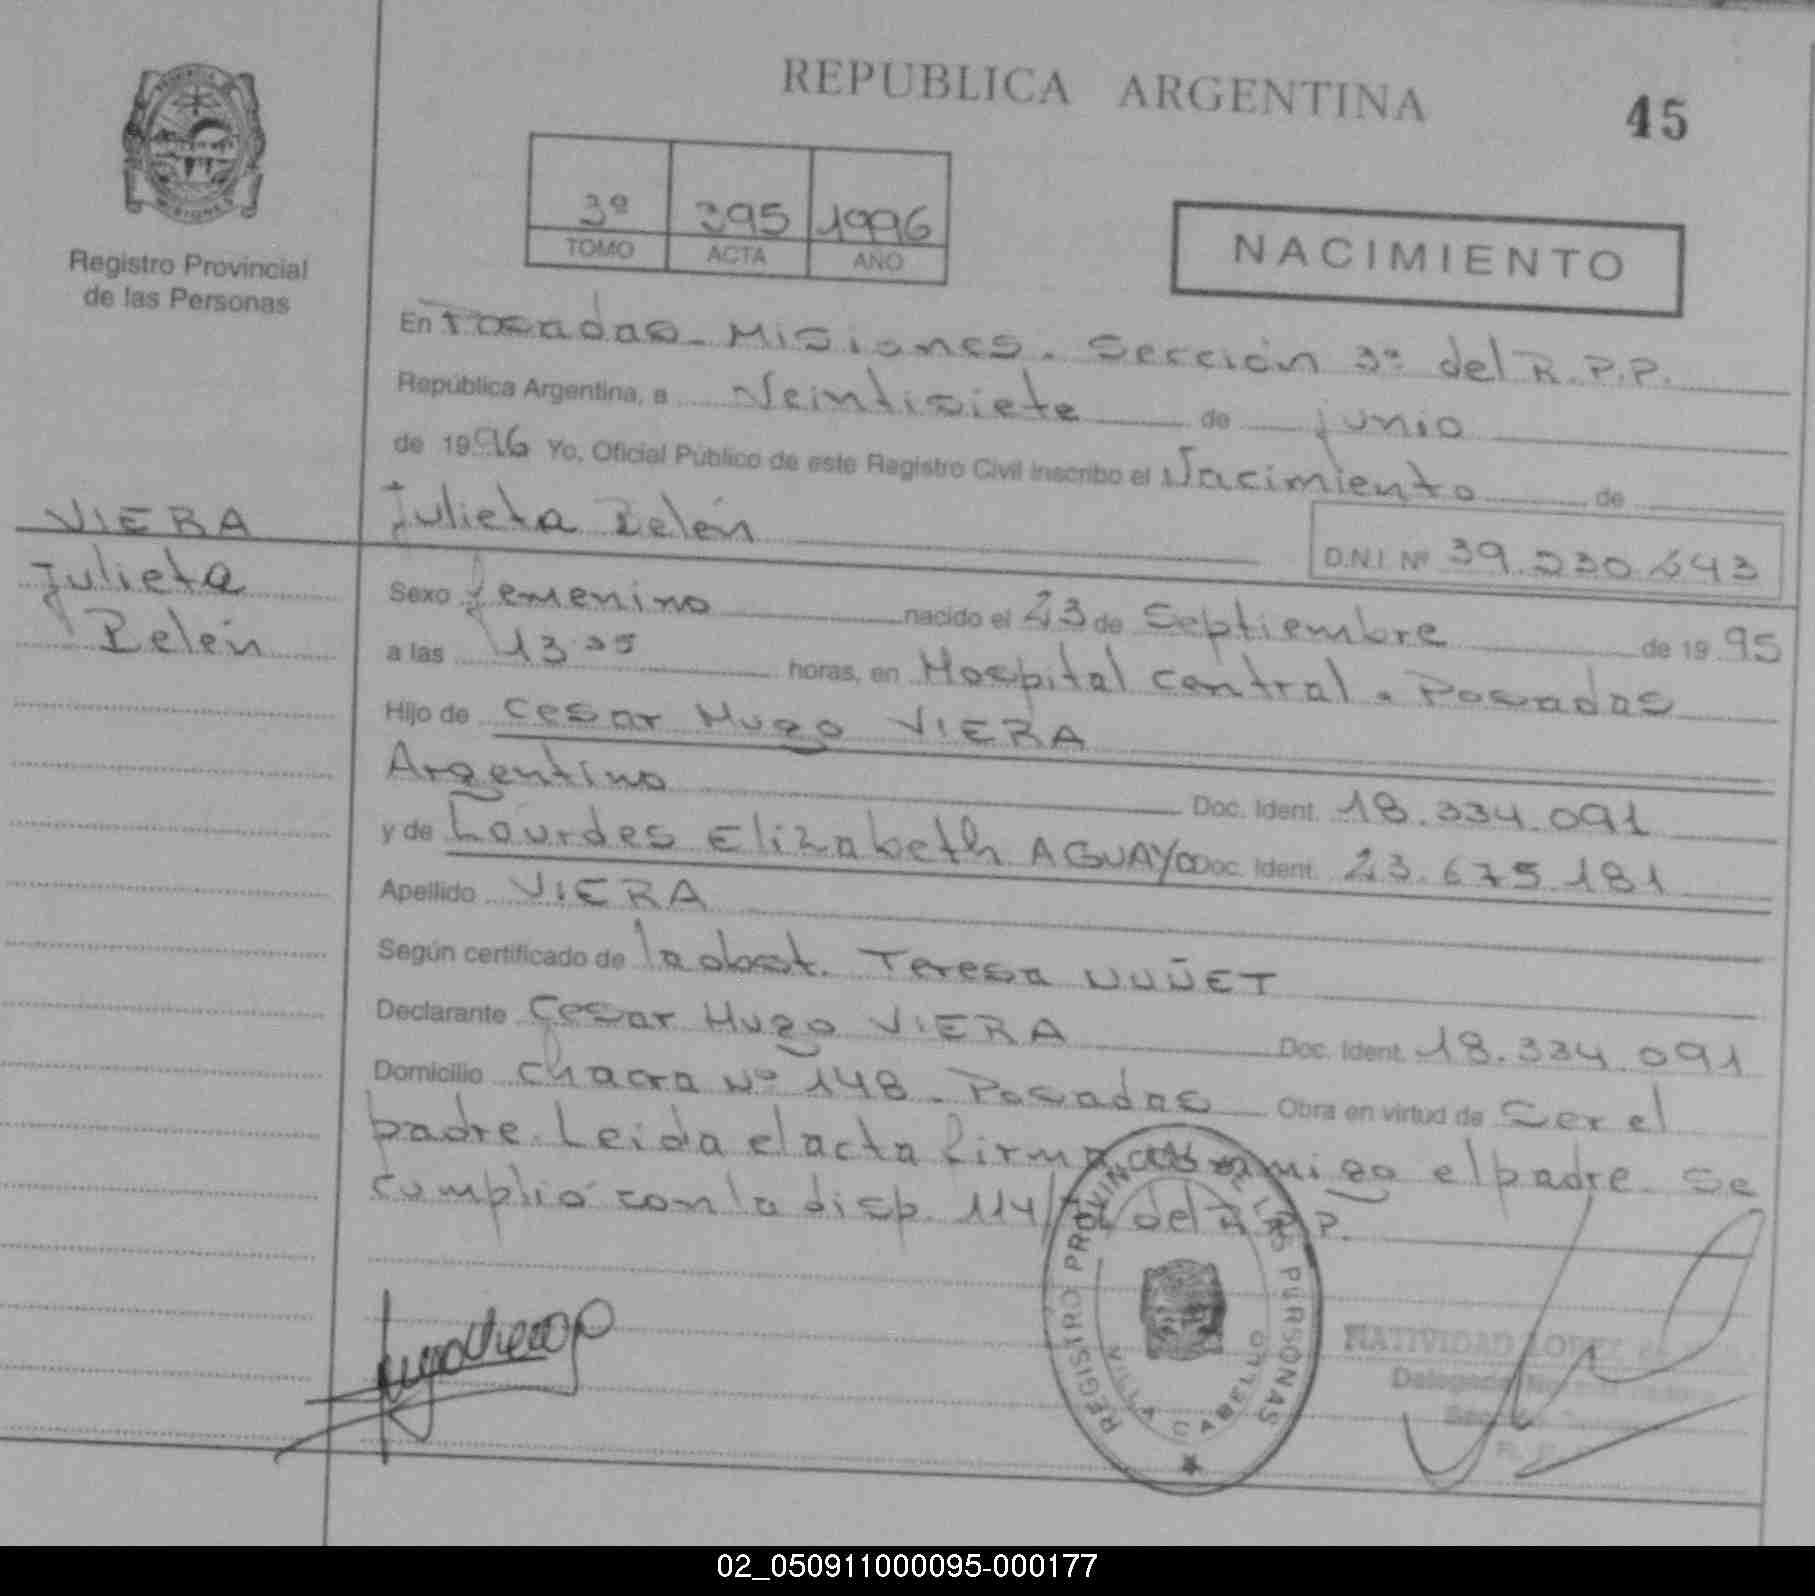 REPUBLICA ARGENTINA
45
PROVINCIA
MISIONES
Registro Provincial
de las Personas
3º 395 1996
TOMO ACTA AÑO
NACIMIENTO
En Posadas - Misiones. Sección 3ª del R.P.P.
República Argentina, a Veintisiete de junio
de 1996 Yo, Oficial Público de este Registro Civil inscribo el Nacimiento de
VIERA
Julieta Belén
D.N.I. Nº 39.230.643
Julieta
Belén
Sexo femenino nacido el 23 de Septiembre de 1995
a las 13:35 horas, en Hospital central - Posadas
Hijo de Cesar Hugo VIERA
Argentino Doc. Ident. 18.334.091
y de Lourdes Elizabeth AGUAYO Doc. Ident. 23.675.181
Apellido VIERA
Según certificado de la obst. Teresa NUÑET
Declarante Cesar Hugo VIERA Doc. Ident. 18.334.091
Domicilio Chacra Nº 148 - Posadas Obra en virtud de Ser el
padre. Leida el acta firma conmigo el padre. Se
cumplió con la disp. 114/ del R.P.P.
REGISTRO PROVINCIAL DE LAS PERSONAS
VILLA CABELLO
NATIVIDAD LOPEZ
02_050911000095-000177